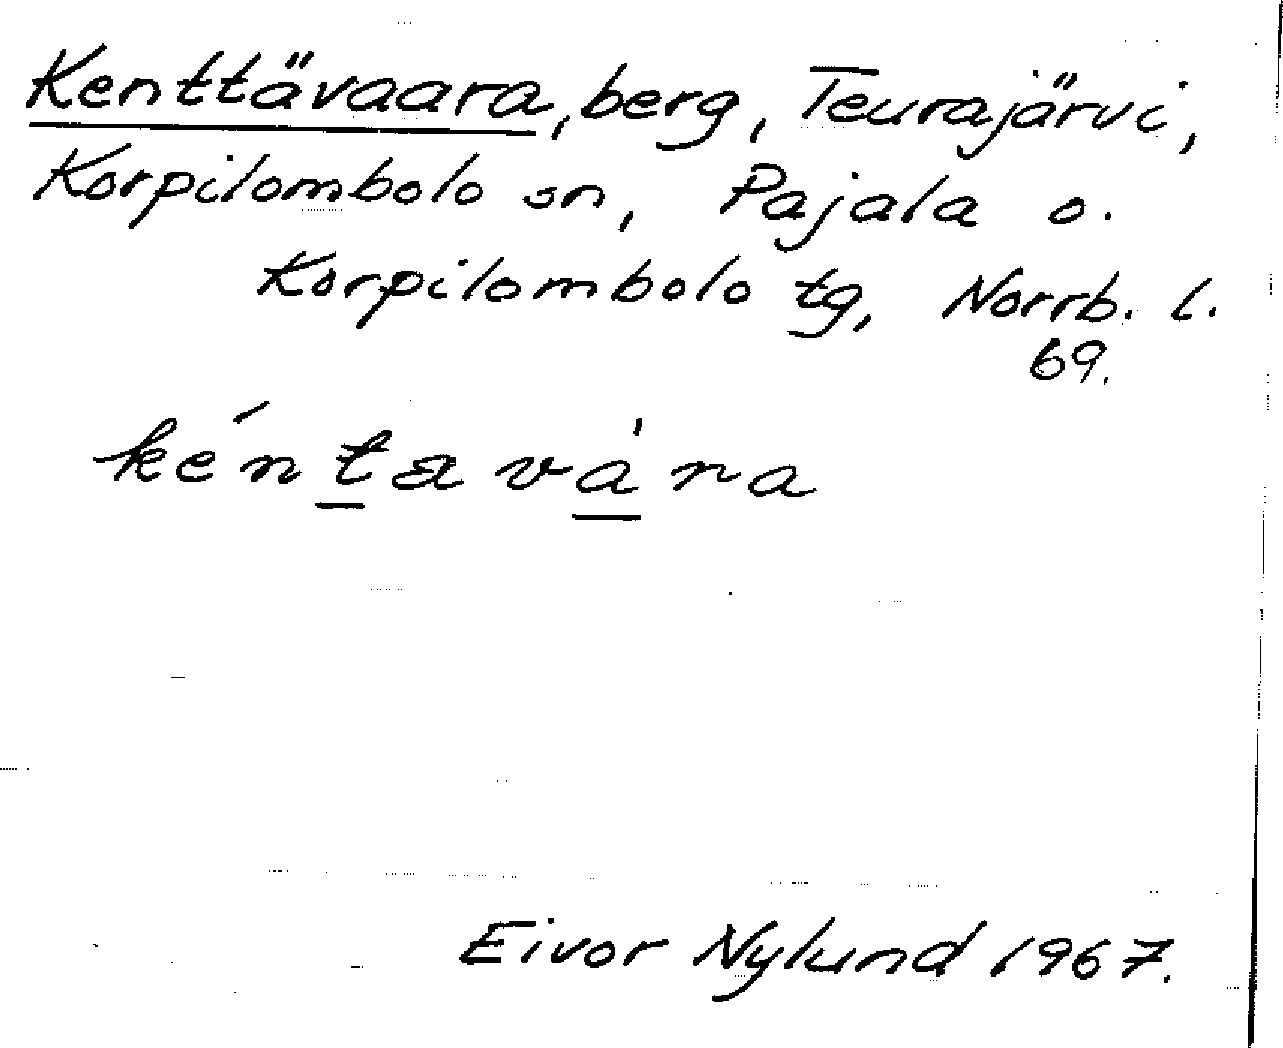 Kenttävaara, berg, Teurajärvi,
Korpilombolo sn, Pajala o.
Korpilombolo tg, Norrb. l.
69.
kéntavára
Eivor Nylund 1967.